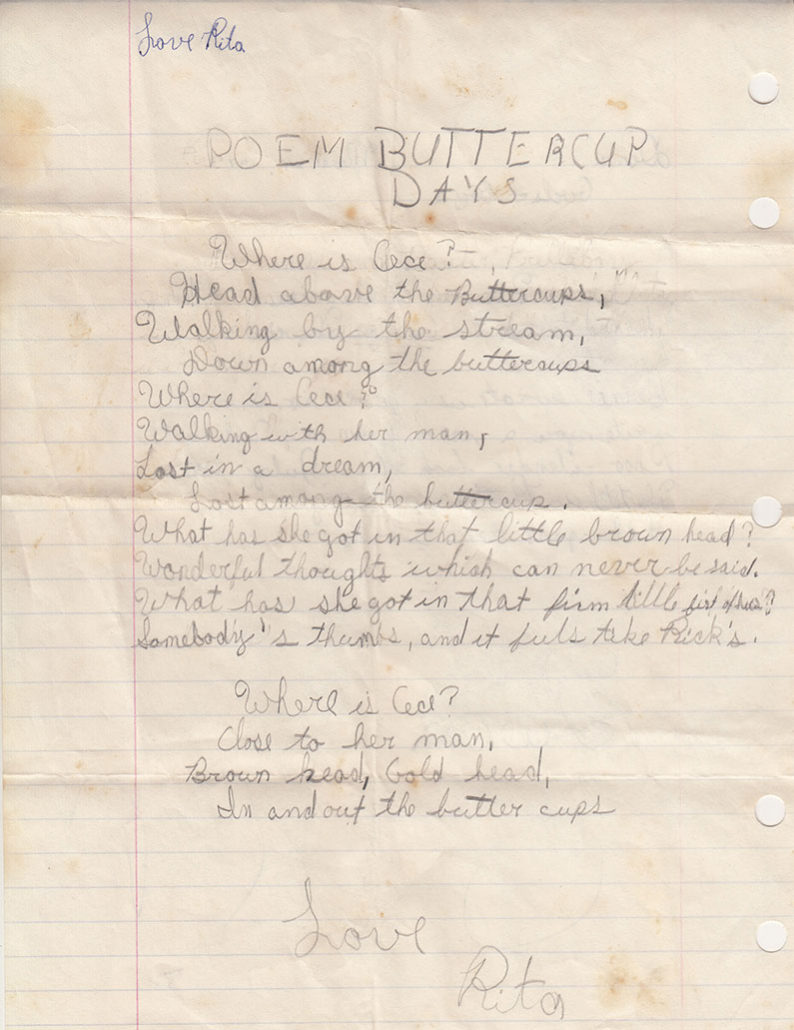 Love Rita
POEM BUTTERCUP
DAYS
Where is Cece?
Head above the Buttercups,
Walking by the stream,
Down among the buttercups
Where is Cece?
Walking with her man,
Lost in a dream,
Lost among the buttercup.
What has she got in that little brown head?
Wonderful thoughts which can never be said.
What has she got in that firm little fist of hers?
Somebody's thumbs, and it fuls like Rick's.
Where is Cece?
Close to her man,
Brown head, Gold head,
In and out the butter cups
Love
Rita